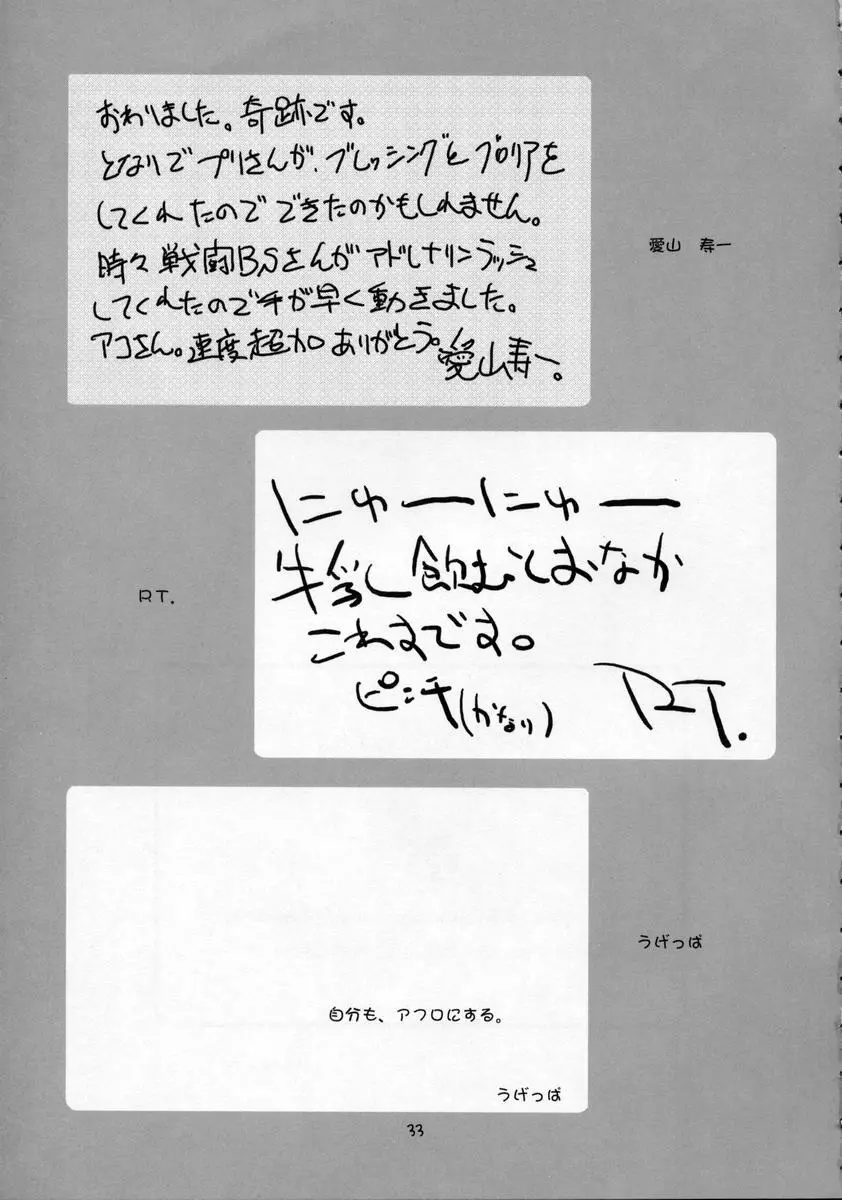 おわりました。奇跡です。
となりでプリさんが、ブレッシングとグロリアを
してくれたのでできたのかもしれません。
時々戦闘BSさんがアドレナリンラッシュ
してくれたので手が早く動きました。
アコさん。速度超加ありがとう。愛山寿一。
愛山 寿一
にゅーにゅー
牛乳飲むとおなか
こわすです。
ピンチ(かなり)
RT.
RT.
うげっぱ
自分も、アフロにする。
うげっぱ
33